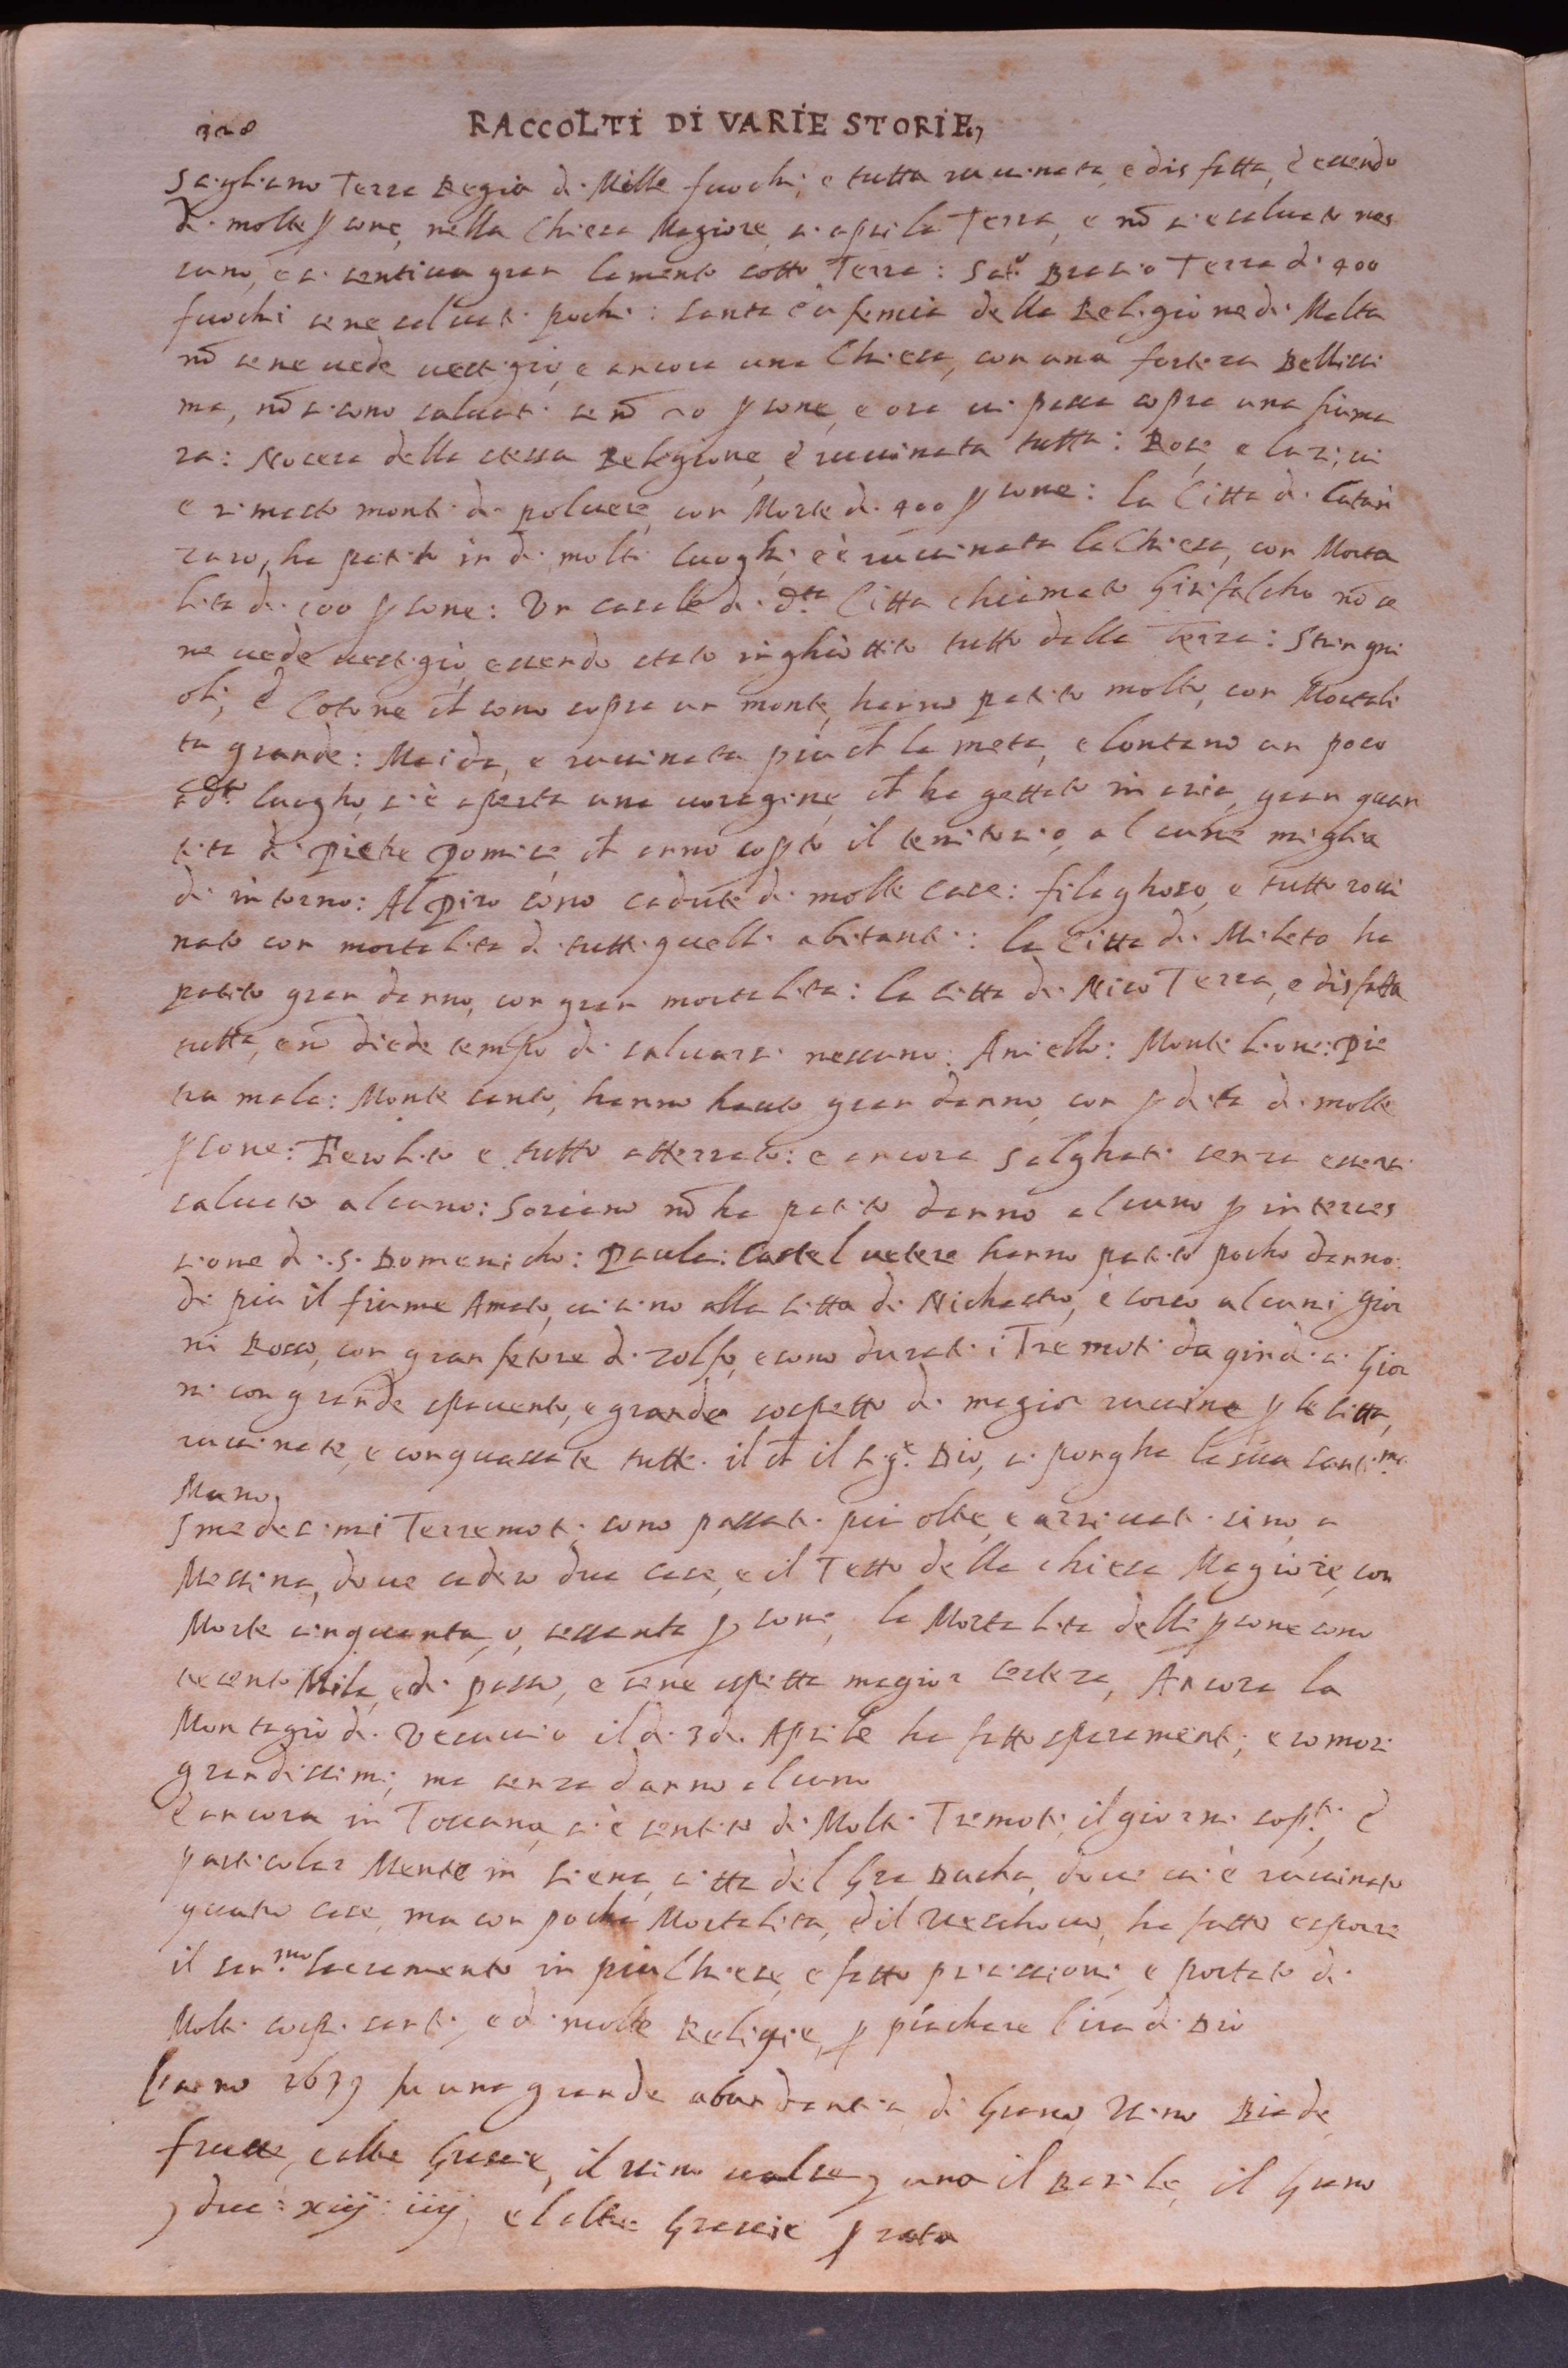 328 RACCOLTI DI VARIE STORIE,
Sagliano Terra Regia di Mille fuochi, e tutta ruuinata, e disfatta, è essendo
di molte ꝑsone, nella Chiesa Magiore, si apri la Terra, e nõ si e saluato nes
suno, e si sentiua gran lamento sotto Terra: Sato Brasio Terra di 400
fuochi se ne saluati pochi: Santa Eufemia della Religione di Malta
nõ se ne uede uestigio, e ancora una Chiesa, con una forteza Bellissi
ma, nõ si sono saluati se nõ 20 ꝑsone, e ora ui passa sopra una fiuma
ra: Nocera della stessa Religione, è ruuinata tutta: Rose, e lazi, ui
e rimasto monti di poluere, con Morte di 400 ꝑsone: la Citta di Catan
zaro, ha patito in di molti luoghi, e è ruuinata la Chiesa, con Morta
lita di 100 ꝑsone: Un casale di d.ta Citta chiamato Girifalcho nõ se
ne uede uestigio, essendo stato inghiottito tutto dalla Terra: Stringni
oli, è Cotone ch̃ sono sopra un monte, hanno patito molto, con Mortali
ta grande: Maida, e ruuinata piu ch̃ la meta, e lontano un poco
a d.to luogho, si è aperta una uoragine, ch̃ ha gettato in aria, gran quan
tita di pietre pomice ch̃ anno coꝑto il territorio, alcune miglia
di intorno: Al Pizo sono cadute di molte case: filaghoso, e tutto roui
nato con mortalita di tutti quelli abitanti: la Citta di Mileto ha
patito gran danno, con gran mortalita: la Citta di Nico Terra, e disfatta
tutta, e nõ diede tempo di saluarsi nessuno: Aniello: Monte lione: Pie
tra mala: Monte santo, hanno hauto gran danno, con ꝑdita di molte
ꝑsone: Ferolito e tutto atterrato: e ancora Salghati senza essersi
saluato alcuno: Soriano nõ ha patito danno alcuno ꝑ interces
sione di S. Domenicho: Paula: Castel uetere hanno patito pocho danno:
di piu il fiume Amato, uicino alla Citta di Nichastro, è corso alcuni gior
ni Rosso, con gran fetore di zolfo, e sono durati i Tremoti da
ni con grande spauento, e grande sospetto di magior ruuina ꝑ le Citta,
ruuinate, e conquassate tutte. il ch̃ il Sig.e Dio, ui pongha la sua santi.ma
Mano,
medesimi Terremoti sono passati piu oltre, e arriuati sino, a
Messina, doue cadero due case, e il Tetto della chiesa Magiore, con
Morte cinquanta, o, sessanta ꝑsone, la Mortalita delle ꝑsone sono
Mila, e di passo, e se ne aspetta magior certeza, Ancora la
Montagio di Vesuuio il di 3 di Aprile ha fatto sparamenti, e romori
grandissimi, ma senza danno alcuno
è ancora in Toscana, si è sentito di Molti Tremoti, il giorni sop.ti, è
particolar Mente in Siena, citta del Gra Ducha, doue ui è ruuinato
quatro case, ma con pocha Mortalita, è il Veschouo, ha fatto esporre
il san.mo Sacramento in piu Chiese, e fatto pricissioni, e portato di
Molti corpi santi, e di molte Reliqie, ꝑ piachare l'ira di Dio
L'anno 1639 fu una grande abundantia, di Grano, Vino Biade,
frutte, e altre Grascie, il uino ualse una il Barile, il Grano
due: xiij: iiij, e l altre Grascie ꝑ rata